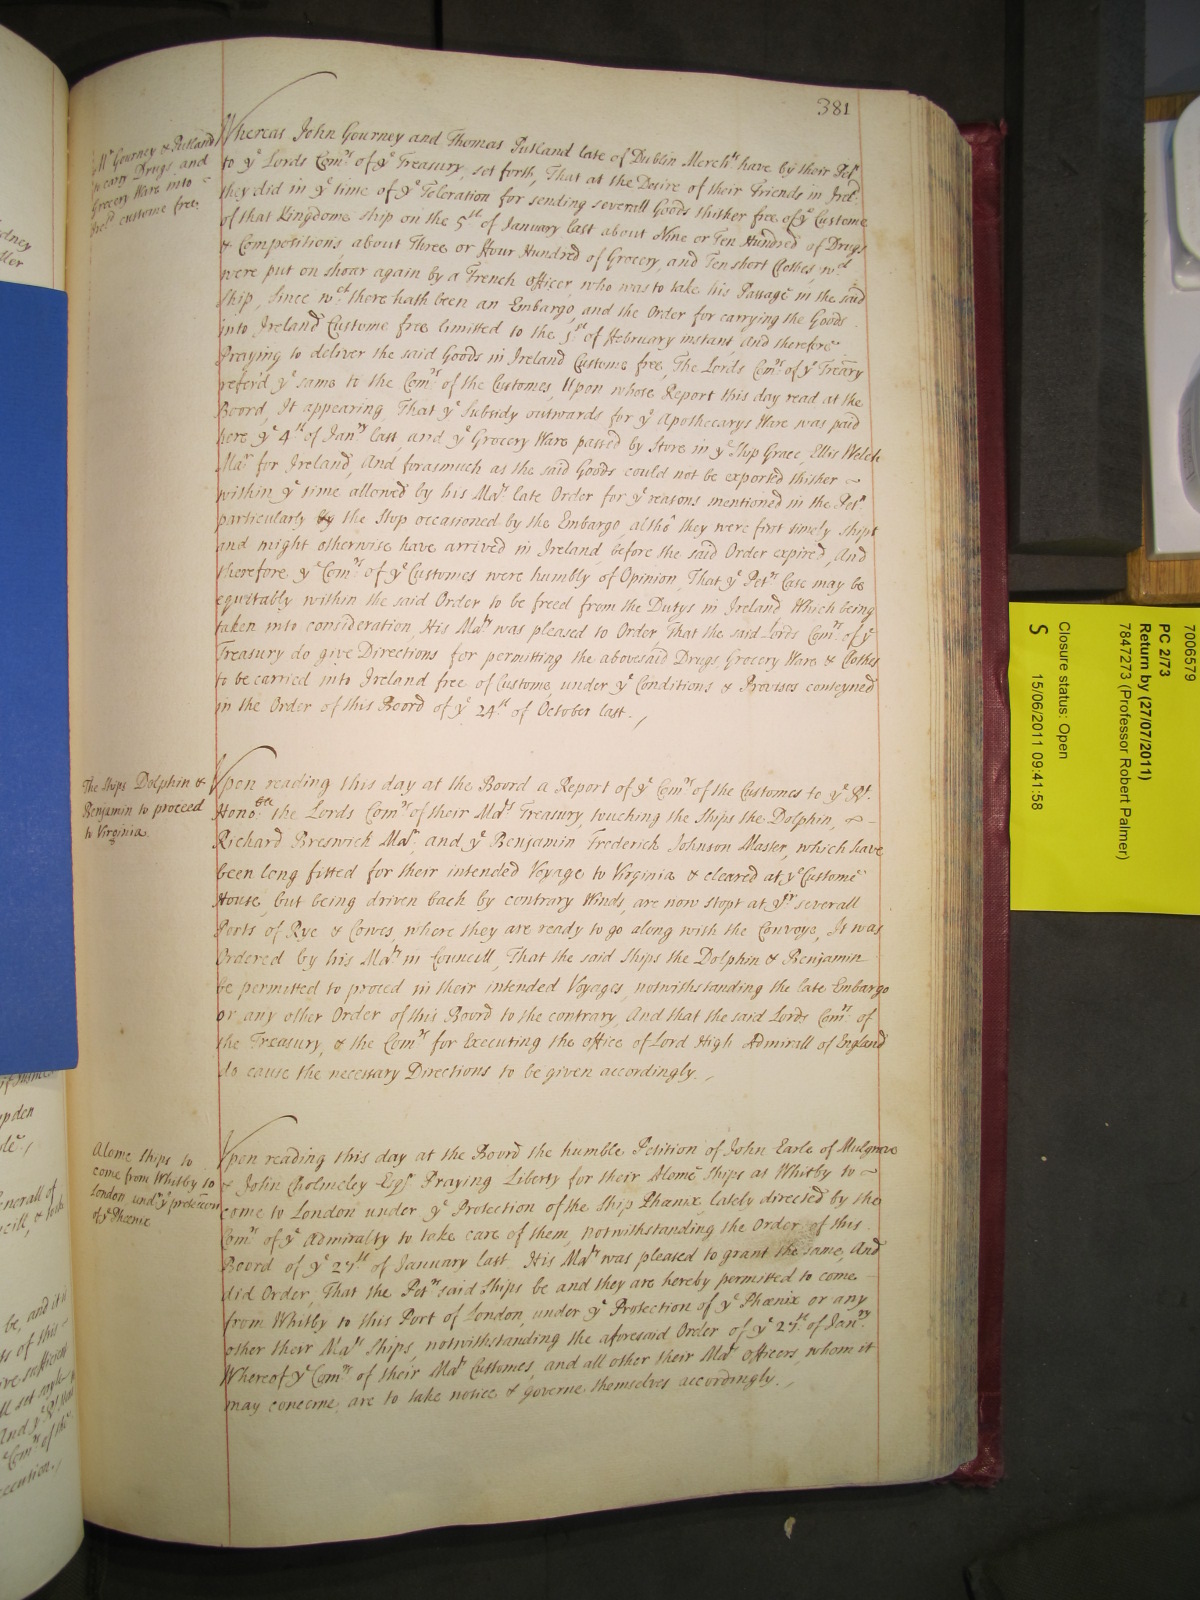 381
Mr Gourney & Putland
to cary Drugs and
Grocery Ware into
Ireld custome free.
Whereas John Gourney and Thomas Putland late of Dublin Merchts have by their Petn
to ye Lords Comrs of ye Treasury, set forth, That at the Desire of their Friends in Irel:
they did in ye time of ye Toleration for sending severall Goods thither free of ye Custome
of that Kingdome ship on the 5th of January last about Nine or Ten Hundred of Drugs
& Compositions, about Three or Four Hundred of Grocery, and Ten short Clothes, wch
were put on shoar again by a French Officer who was to take his Passage in the said
Ship, since wch there hath been an Embargo, and the Order for carrying the Goods
into Ireland Custome free limitted to the 1st of February instant and therefore
Praying to deliver the said Goods in Ireland Custome free, The Lords Comrs of ye Treary
referd ye same to the Comrs of the Customes, Upon whose Report this day read at the
Board, It appearing That ye Subsidy outwards for ye Apothecarys Ware was paid
here ye 4th of Janry last, and ye Grocery Ware passed by Store in ye Ship Grace, Ellis Welch
Mar for Ireland, And forasmuch as the said Goods could not be exported thither
within ye time allowed by his Mats late Order for ye reasons mentioned in the Petn
particularly by the Stop occasioned by the Embargo, altho they were first timely shipt
and might otherwise have arrived in Ireland before the said Order expired, And
therefore ye Comrs of ye Customes were humbly of Opinion, That ye Petrs Case may be
equitably within the said Order to be freed from the Dutys in Ireland Which being
taken into consideration, His Maty was pleased to Order That the said Lords Comrs of ye
Treasury do give Directions for permitting the abovesaid Drugs, Grocery Ware & Clothes
to be carried into Ireland free of Custome, under ye Conditions & Provisos conteyned
in the Order of this Board of ye 24th of October last.
The Ships Dolphin &
Benjamin to proceed
to Virginia
Upon reading this day at the Board a Report of ye Comrs of the Customes to ye Rt.
Honoble the Lords Comrs of their Mats Treasury, touching the Ships the Dolphin,
Richard Breswick Mar, and ye Benjamin Frederick Johnson Master, which have
been long fitted for their intended Voyage to Virginia & cleared at ye Custome
House, but being driven back by contrary Winds, are now stopt at yr severall
Ports of Rye & Cowes, where they are ready to go along with the Convoyo, It was
Ordered by his Maty in Councill, That the said Ships the Dolphin & Benjamin
be permitted to proceed in their intended Voyages, notwithstanding the late Embargo
or any other Order of this Board to the contrary, And that the said Lords Comrs of
the Treasury, & the Comrs for Executing the office of Lord High Admirall of England
do cause the necessary Directions to be given accordingly.
Alome Ships to
come from Whitby to
London undr ye protection
of ye Phœnix
Upon reading this day at the Board the humble Petition of John Earle of Mulgrave
& John Cholmeley Esqr Praying Liberty for their Alome Ships at Whitby to
come to London under ye Protection of the Ship Phœnix, lately directed by the
Comrs of ye Admiralty to take care of them, notwithstanding the Order of this
Board of ye 27th of January last His Maty was pleased to grant the same, And
did Order, That the Petrs said Ships be and they are hereby permitted to come
from Whitby to this Port of London, under ye Protection of ye Phœnix or any
other their Mats Ships, notwithstanding the aforesaid Order of ye 27th of Janry
Whereof ye Comrs of their Mats Customes, and all other their Mats Officers whom it
may concerne, are to take notice & governe themselves accordingly.
7006579
PC 2/73
Return by (27/07/2011)
7847273 (Professor Robert Palmer)
Closure status: Open
S 15/06/2011 09:41:58